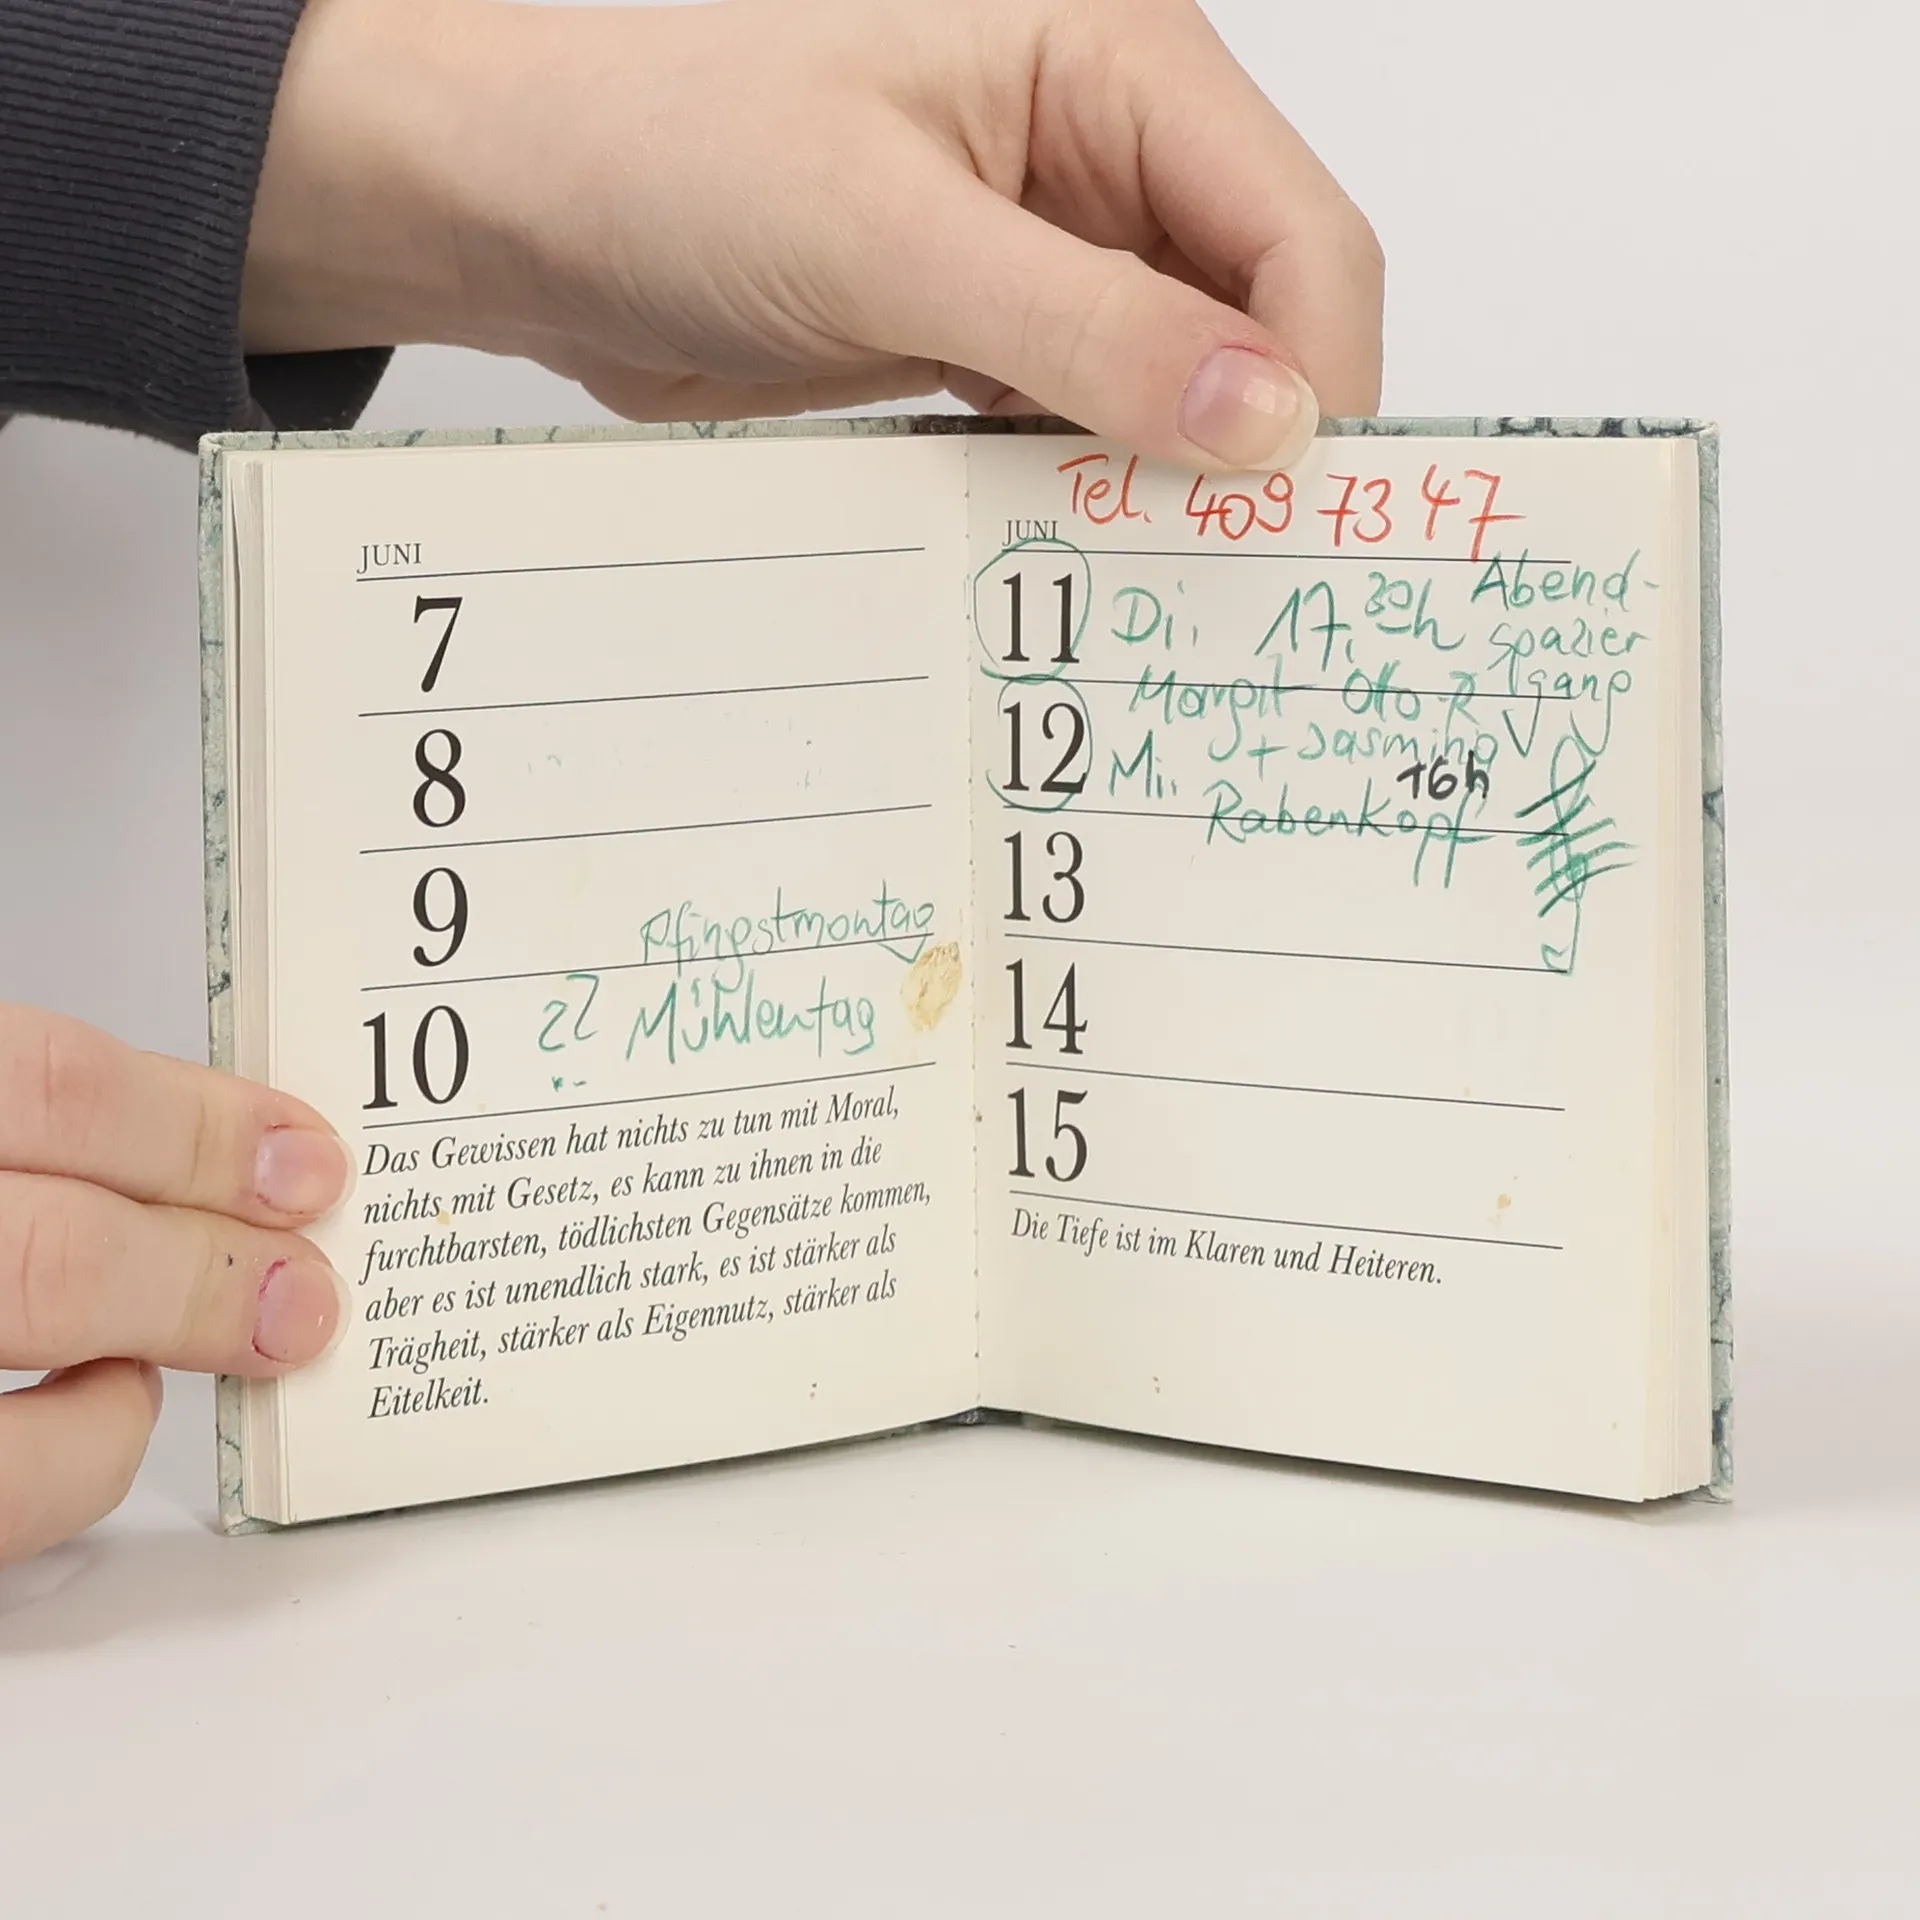 JUNI
7
8
9
Pfingstmontag
10 Mühlentag
Das Gewissen hat nichts zu tun mit Moral,
nichts mit Gesetz, es kann zu ihnen in die
furchtbarsten, tödlichsten Gegensätze kommen,
aber es ist unendlich stark, es ist stärker als
Trägheit, stärker als Eigennutz, stärker als
Eitelkeit.
Tel. 409 73 47
JUNI
11 Di. 17.30h Abend-
spazier
gang
Margit Otto R
+ Jasmino
12 Mi. 16h
Rabenkopf
13
14
15
Die Tiefe ist im Klaren und Heiteren.